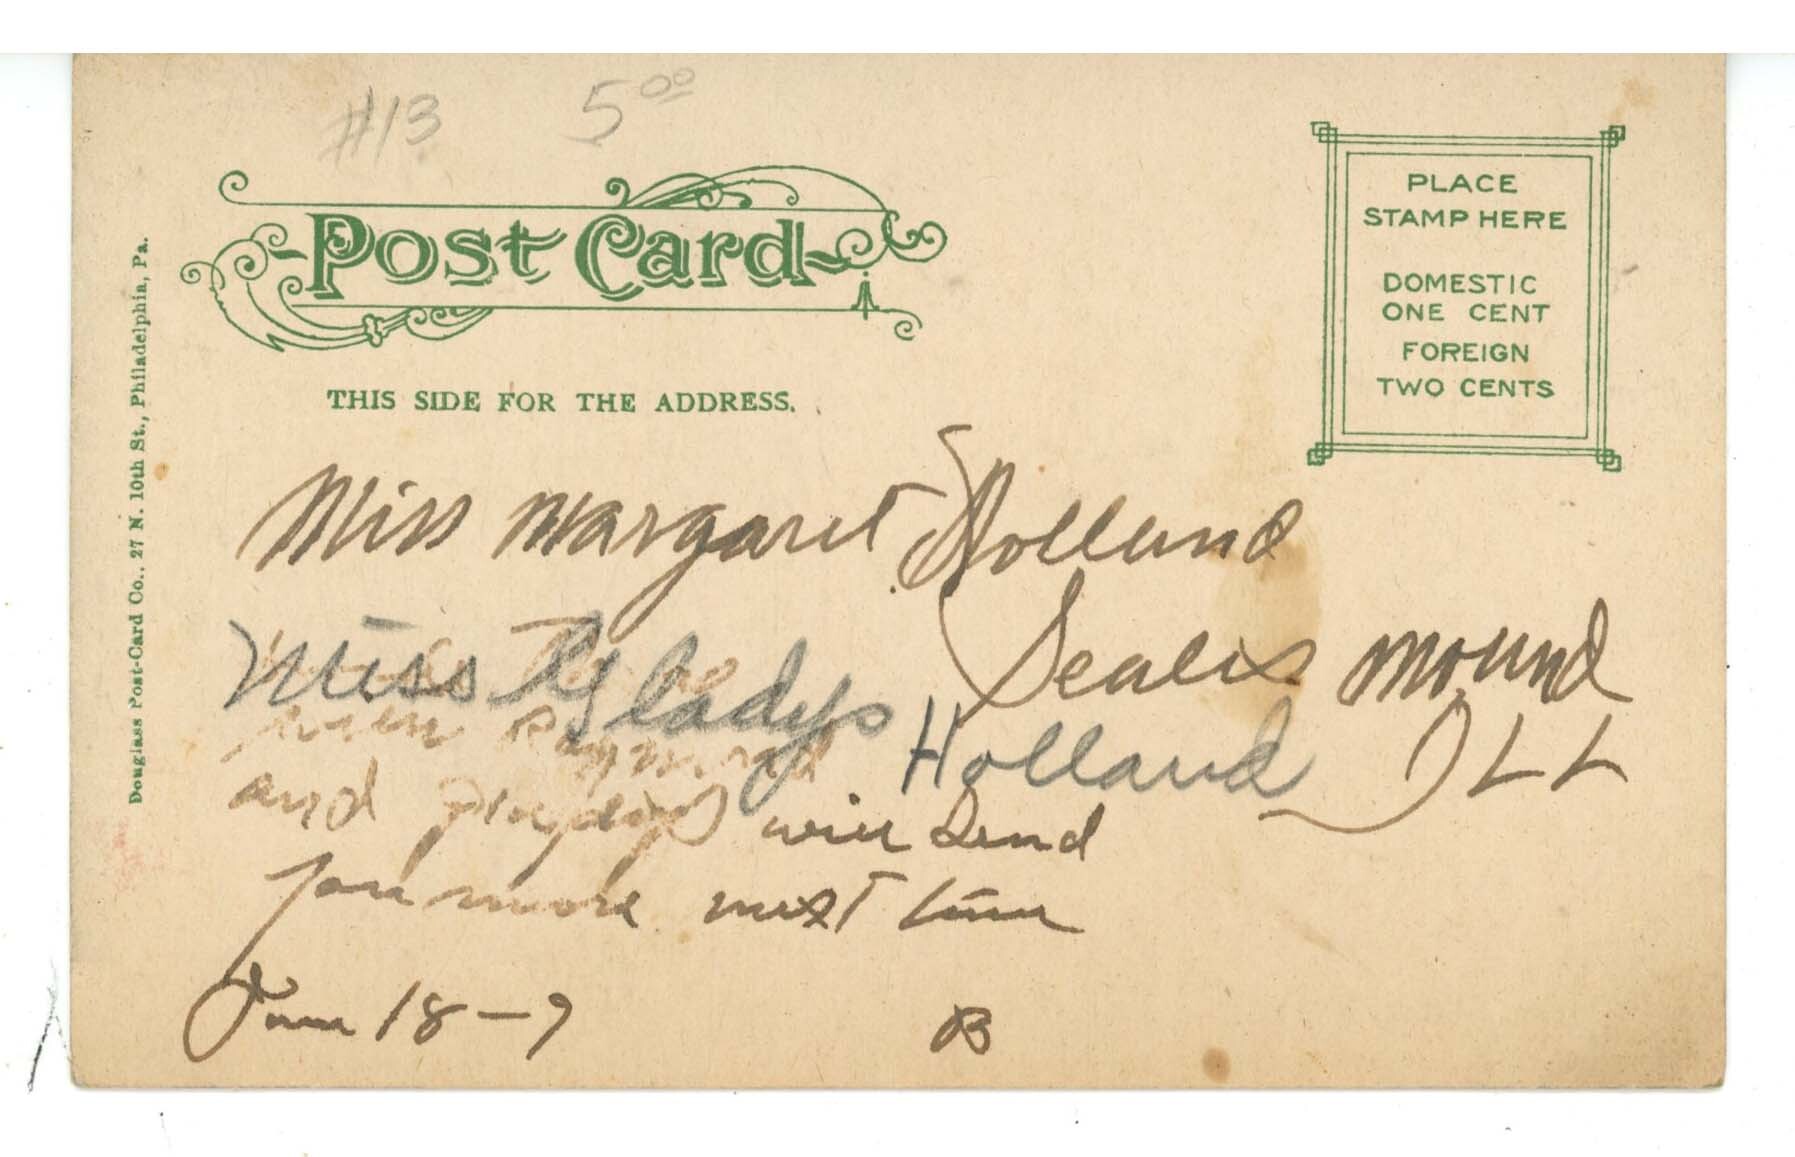 #13 5.00
Post Card
THIS SIDE FOR THE ADDRESS.
PLACE
STAMP HERE
DOMESTIC
ONE CENT
FOREIGN
TWO CENTS
Douglass Post-Card Co., 27 N. 10th St., Philadelphia, Pa.
Miss Margaret Holland
Seales Mound
ILL
Miss Gladys Holland
when Raymond
and Gladys will send
you more next time
June 18-7 B